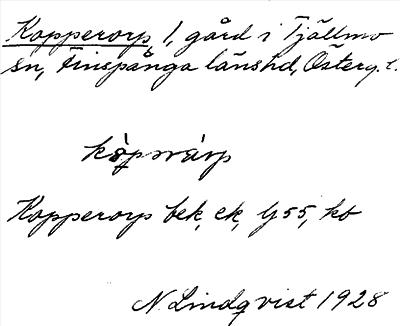 Kopperorp, 1, gård i Tjällmo
sn, Finspånga länshd, Österg. l.
Kopperorp bek, ek, lj 55, kb
N. Lindqvist 1928